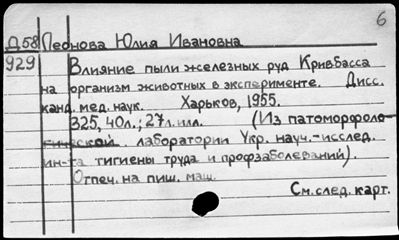 6
Д58 Леонова Юлия Ивановна
929 Влияние пыли железных руд Кривбасса
на организм животных в эксперименте. Дисс.
канд. мед. наук. Харьков, 1955.
325, 40л.; 27л. илл. (Из патоморфоло-
гической лаборатории Укр. науч.-исслед.
ин-та гигиены труда и профзаболеваний).
Отпеч. на пиш. маш.
См. след. карт.